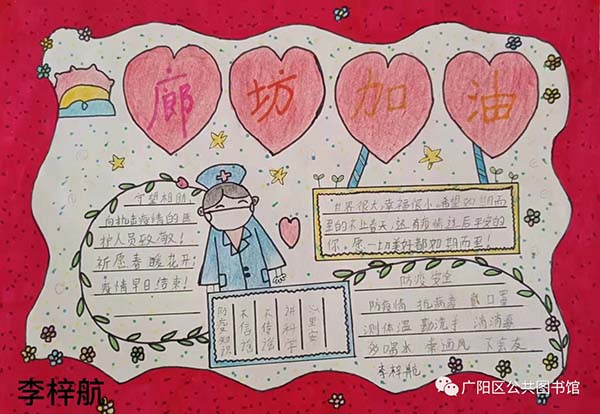 廊坊加油
守望相助,
向抗击疫情的医
护人员致敬!
祈愿春暖花开,
疫情早日结束!
"世界很大,幸福很小。希望如期而
至的不止春天,还有疫情过后平安的
你。愿一切美好都如期而至!
防疫知识
不信谣
不传谣
讲科学
心里安
防疫安全
防疫情 抗病毒 戴口罩
测体温 勤洗手 消消毒
多喝水 常通风 不会友
李梓航
李梓航
广阳区公共图书馆